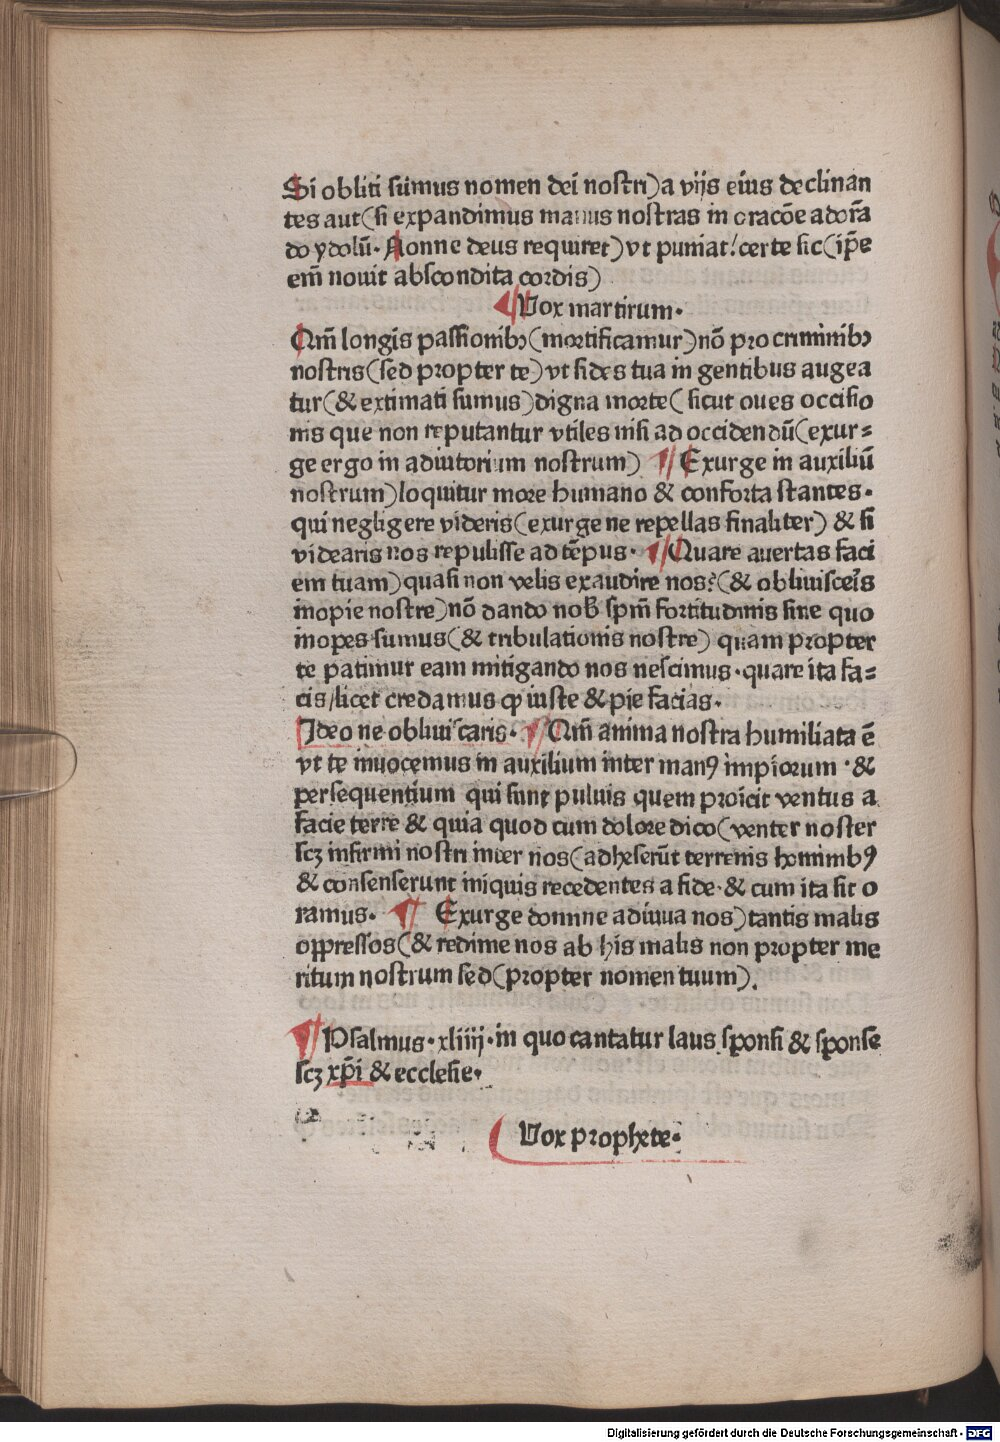 Si obliti sumus nomen dei nostri) a vijs eius declinan
tes aut (si expandimus manus nostras in oracōe adorā
do ydolū. Nonne deus requiret) vt puniat! certe sic (ip̄e
em̄ nouit abscondita cordis)
¶ Vox martirum.
Qm̄ longis passionibꝫ (mortificamur) nō pro criminibꝫ
nostris (sed propter te) vt fides tua in gentibus augea
tur (& extimati sumus) digna morte (sicut oues occisio
nis que non reputantur vtiles nisi ad occidendū (exur⸗
ge ergo in adiutorium nostrum) ¶ Exurge in auxiliū
nostrum) loquitur more humano & conforta stantes.
qui negligere videris (exurge ne repellas finaliter) & si
videaris nos repulisse ad tēpus. ¶ Quare auertas faci
em tuam) quasi non velis exaudire nos? (& obliuisceīs
inopie nostre) nō dando nob̄ sp̄m fortitudinis sine quo
inopes sumus (& tribulationis nostre) quam propter
te patimur eam mitigando nos nescimus. quare ita fa⸗
cis / licet credamus ꝙ iuste & pie facias.
Ideo ne obliuiscaris. ¶ Qm̄ anima nostra humiliata ē
vt te inuocemus in auxilium inter manꝰ impiorum . &
persequentium qui sunt puluis quem proicit ventus a
facie terre & quia quod cum dolore dico (venter noster
scꝫ infirmi nostri inter nos (adheserūt terrenis hominibꝰ
& consenserunt iniquis recedentes a fide. & cum ita sit o
ramus. ¶ Exurge domine adiuua nos) tantis malis
oppressos (& redime nos ab his malis non propter me
ritum nostrum sed (propter nomen tuum).
¶ Psalmus. xliiij. in quo cantatur laus sponsi & sponse
scꝫ xp̄i & ecclesie.
Vox prophete.
Digitalisierung gefördert durch die Deutsche Forschungsgemeinschaft - DFG